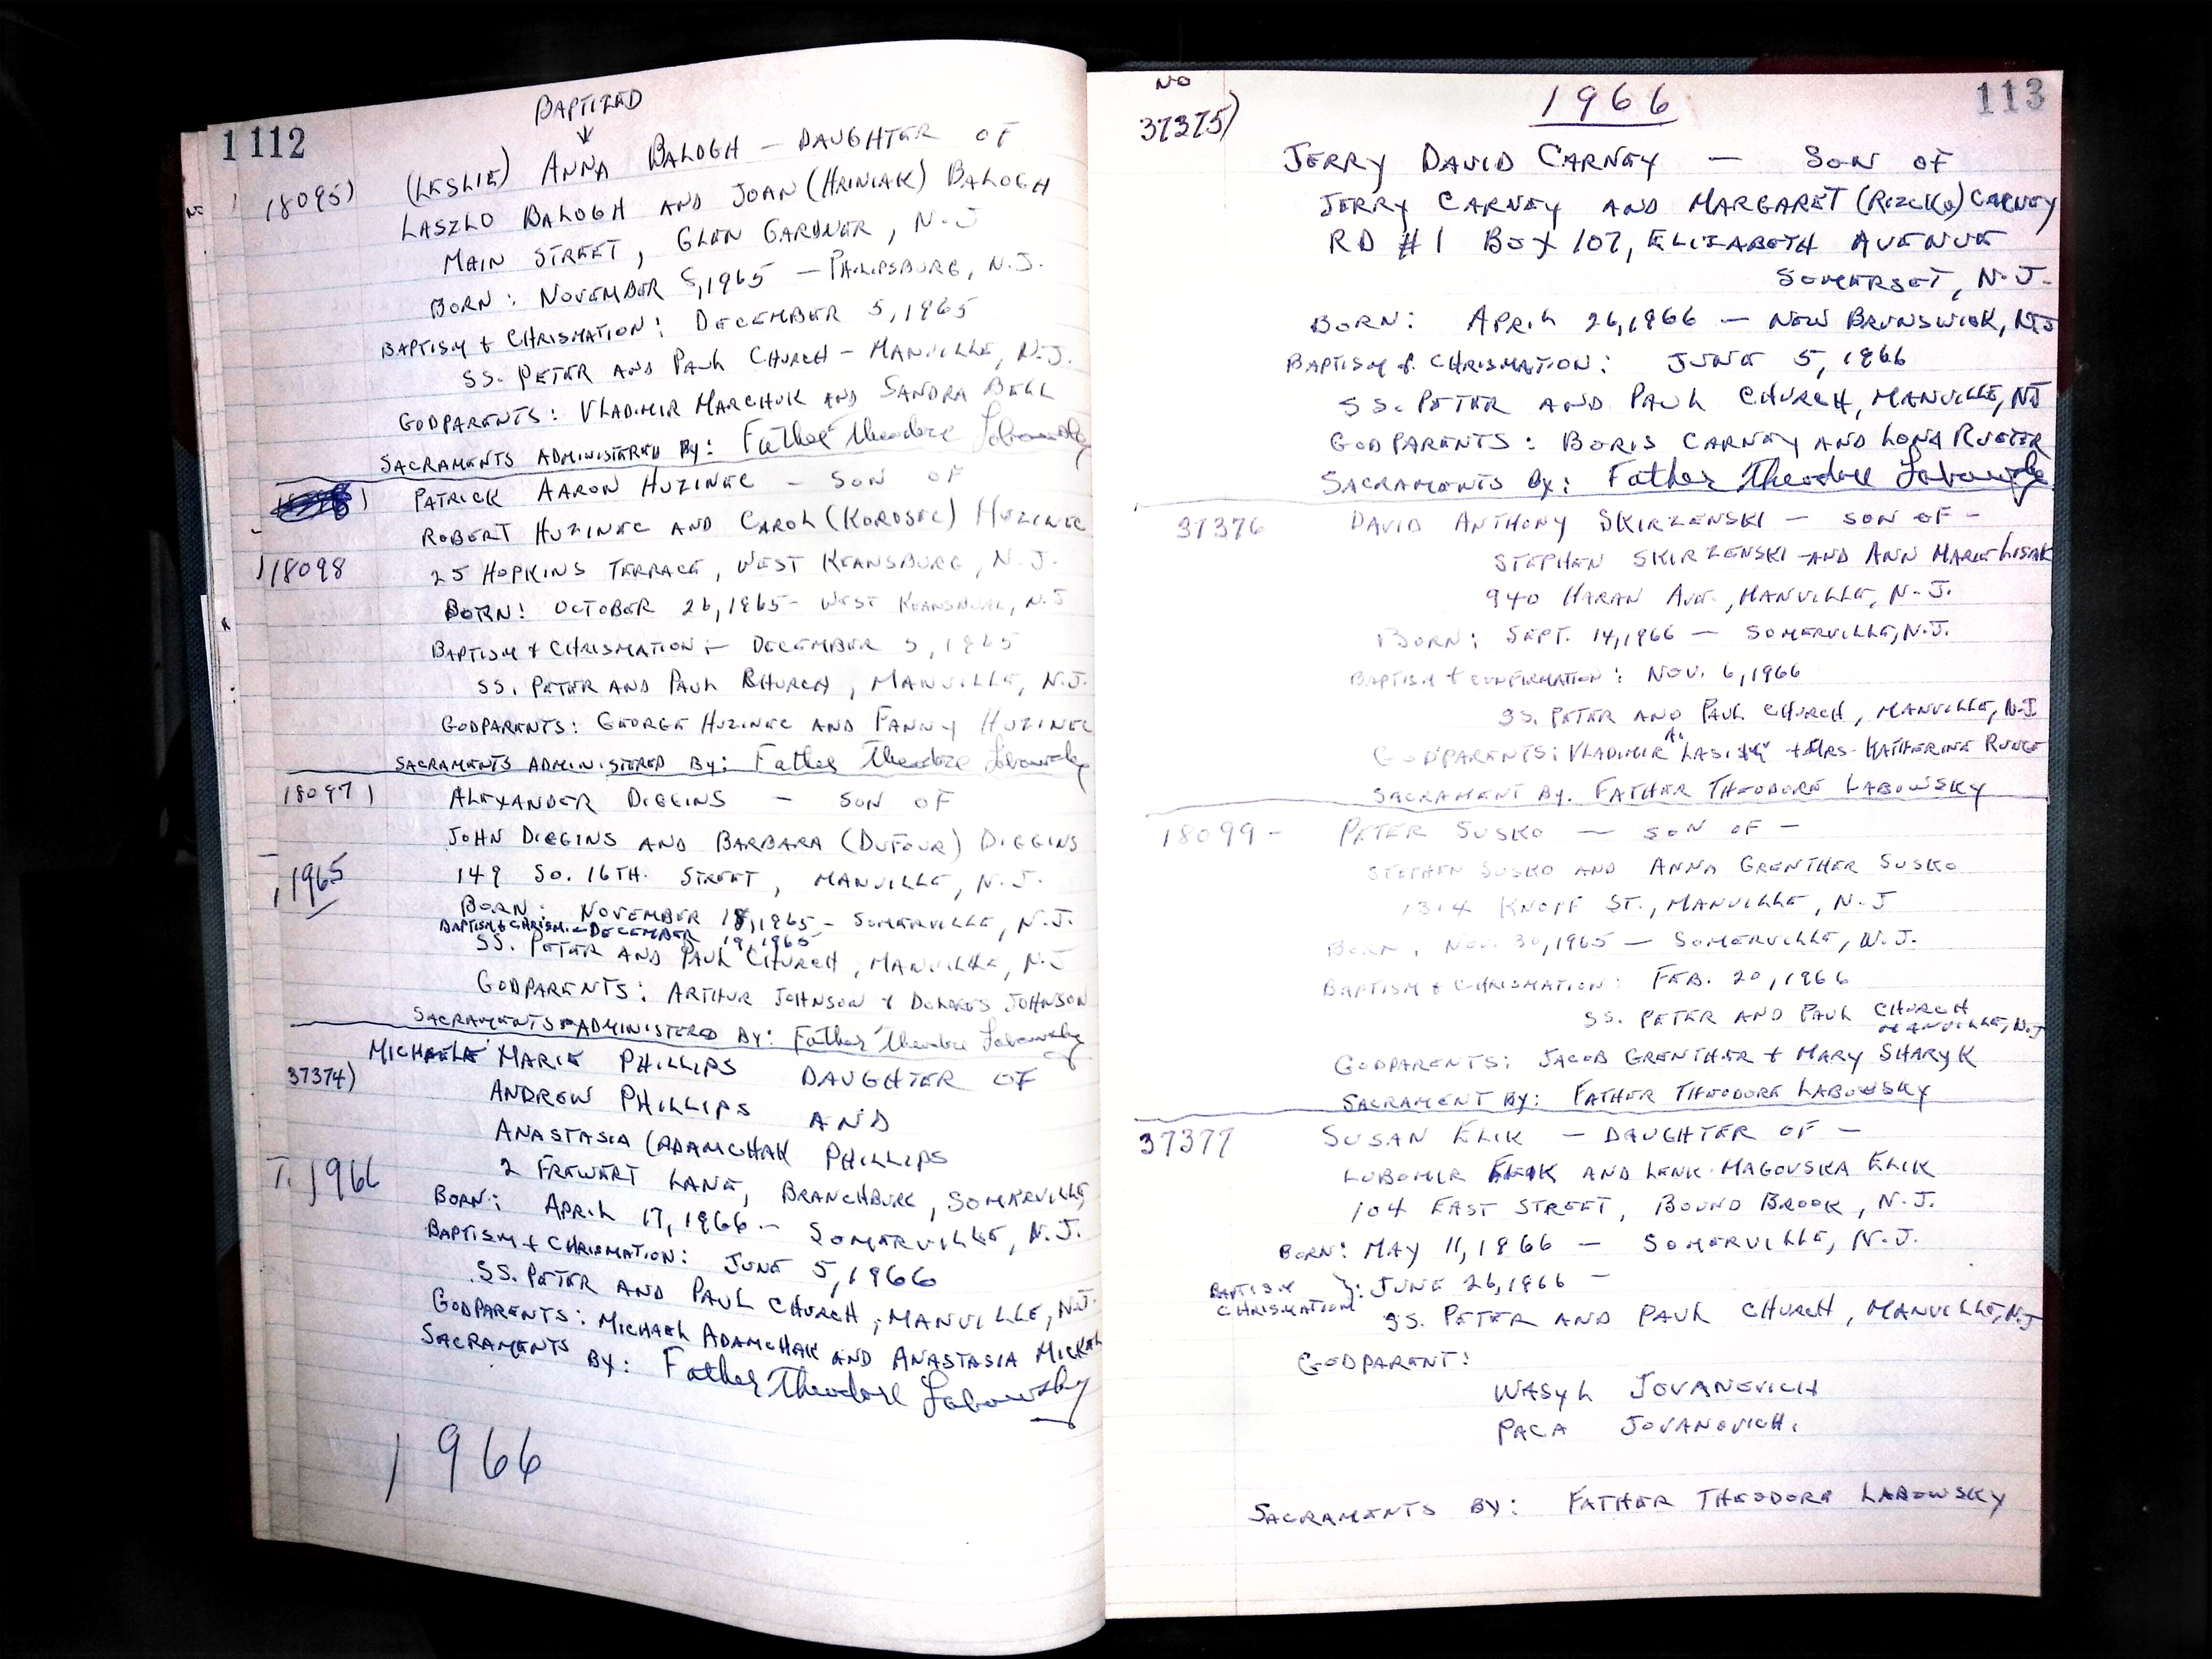 1 112
BAPTIZED
18095) (LESLIE) ANNA BALOGH — DAUGHTER OF
LASZLO BALOGH AND JOAN (HRINIAK) BALOGH
MAIN STREET, GLEN GARDNER, N.J
BORN: NOVEMBER 5, 1965 — PHILIPSBURG, N.J.
BAPTISM & CHRISMATION: DECEMBER 5, 1965
SS. PETER AND PAUL CHURCH — MANVILLE, N.J.
GODPARENTS: VLADIMIR MARCHUK AND SANDRA BELL
SACRAMENTS ADMINISTERED BY: Father Theodore Labowsky
) PATRICK AARON HUZINEC — SON OF
ROBERT HUZINEC AND CAROL (KOROSEC) HUZINEC
18098 25 HOPKINS TERRACE, WEST KEANSBURG, N.J.
BORN: OCTOBER 26, 1965 - WEST KEANSBURG, N.J
BAPTISM & CHRISMATION — DECEMBER 5, 1965
SS. PETER AND PAUL CHURCH, MANVILLE, N.J.
GODPARENTS: GEORGE HUZINEC AND FANNY HUZINEC
SACRAMENTS ADMINISTERED BY: Father Theodore Labowsky
18097) ALEXANDER DIGGINS — SON OF
JOHN DIGGINS AND BARBARA (DUFOUR) DIGGINS
1965 149 SO. 16TH. STREET, MANVILLE, N.J.
BORN: NOVEMBER 18, 1965 - SOMERVILLE, N.J.
BAPTISM & CHRISM. - DECEMBER 19, 1965
SS. PETER AND PAUL CHURCH, MANVILLE, N.J
GODPARENTS: ARTHUR JOHNSON & DOLORES JOHNSON
SACRAMENTS ADMINISTERED BY: Father Theodore Labowsky
MICHAELE MARIE PHILLIPS DAUGHTER OF
37374) ANDREW PHILLIPS AND
ANASTASIA (ADAMCHAK PHILLIPS
1966 2 LANE, BRANCHBURG, SOMERVILLE,
BORN: APRIL 17, 1966 - SOMERVILLE, N.J.
BAPTISM & CHRISMATION: JUNE 5, 1966
SS. PETER AND PAUL CHURCH, MANVILLE, N.J.
GODPARENTS: MICHAEL ADAMCHAK AND ANASTASIA MICKEL
SACRAMENTS BY: Father Theodore Labowsky
1966
NO 1966 113
37375)
JERRY DAVID CARNEY — SON OF
JERRY CARNEY AND MARGARET (RIZCKO) CARNEY
RD #1 BOX 107, ELIZABETH AVENUE
SOMERSET, N.J.
BORN: APRIL 26, 1966 — NEW BRUNSWICK, NJ
BAPTISM & CHRISMATION: JUNE 5, 1966
SS. PETER AND PAUL CHURCH, MANVILLE, NJ
GODPARENTS: BORIS CARNEY AND LONA RUETER
SACRAMENTS BY: Father Theodore Labowsky
37376 DAVID ANTHONY SKIRZENSKI — SON OF —
STEPHEN SKIRZENSKI AND ANN MARIE LISAK
940 HARAN AVE., MANVILLE, N.J.
BORN: SEPT. 14, 1966 — SOMERVILLE, N.J.
BAPTISM & CONFIRMATION: NOV. 6, 1966
SS. PETER AND PAUL CHURCH, MANVILLE, N.J
GODPARENTS: VLADIMIR + MRS. KATHERINE RUNGE
SACRAMENT BY. FATHER THEODORE LABOWSKY
18099 - PETER SUSKO — SON OF —
STEPHEN SUSKO AND ANNA GRENTHER SUSKO
1314 KNOPF ST., MANVILLE, N.J
BORN. NOV. 30, 1965 — SOMERVILLE, N.J.
BAPTISM & CHRISMATION: FEB. 20, 1966
SS. PETER AND PAUL CHURCH
MANVILLE, N.J
GODPARENTS: JACOB GRENTHER + MARY SHARYK
SACRAMENT BY: FATHER THEODORE LABOWSKY
37377 SUSAN ELIK — DAUGHTER OF —
LUBOMIR ELIK AND LENK MAGOVSKA ELIK
104 EAST STREET, BOUND BROOK, N.J.
BORN: MAY 11, 1966 — SOMERVILLE, N.J.
BAPTISM CHRISMATION }: JUNE 26, 1966 —
SS. PETER AND PAUL CHURCH, MANVILLE, N.J
GODPARENT:
WASYL JOVANOVICH
PACA JOVANOVICH.
SACRAMENTS BY: FATHER THEODORE LABOWSKY